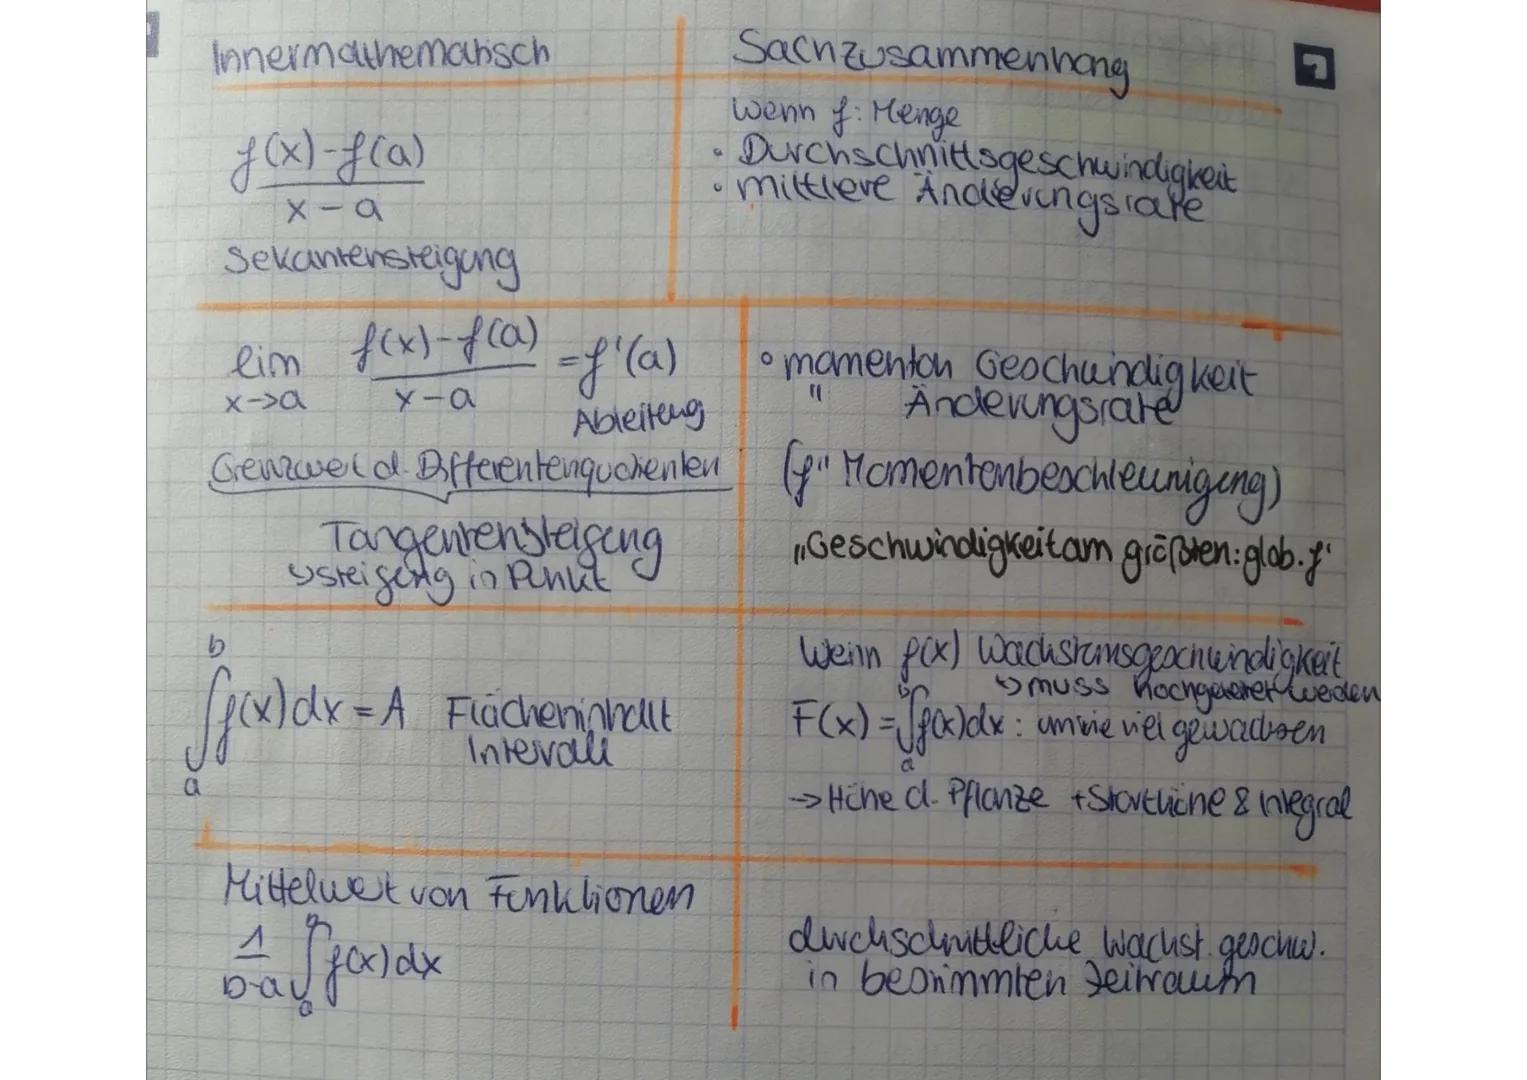 Innermathematisch
Sachzusammenhang
f(x)-f(a)
x-a
Sekantensteigung
Wenn f: Menge
• Durchschnittsgeschwindigkeit
• mittlere Änderungsrate
lim f(x)-f(a) = f'(a)
x->a x-a
Ableitung
Grenzwert d. Differentenquotienten
Tangentensteigung
↳ Steigung in Punkt
• momentan Geschwindigkeit
" Änderungsrate
(f" Momentenbeschleunigung)
"Geschwindigkeit am größten: glob. f'
b
∫f(x)dx = A Flächeninhalt
a
Intervall
Wenn f(x) Wachstumsgeschwindigkeit
↳ muss werden
F(x) = ∫f(x)dx : um wie viel gewachsen
b
a
-> Höhe d. Pflanze + Starthöhe & Integral
Mittelwert von Funktionen
1
b-a ∫f(x)dx
a
durchschnittliche Wachst. geschw.
in bestimmten Zeitraum